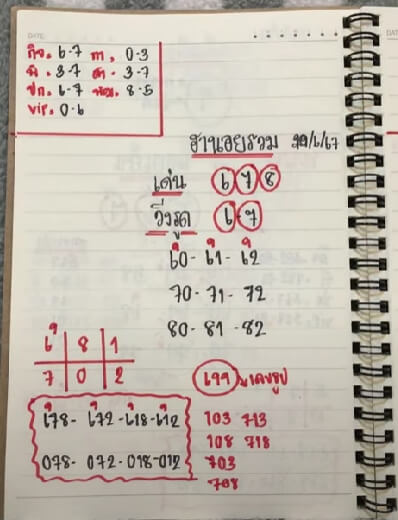 DATE
กิจ. 6-7 กา. 0-3
พิ. 3-7 สา. 3-7
ปก. 6-7 พัฒ. 8-5
vip. 0-6
ฮานอยรวม 20/6/67
เด่น 6 7 8
วิ่งรูด 6 7
60- 61- 62
70- 71- 72
80- 81 -82
6 8 1
7 0 2
678- 672 -618-612
078- 072-018-012
103 713
108 718
703
708